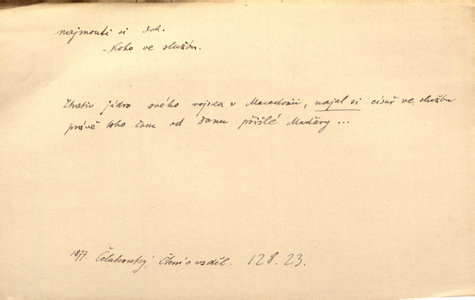 najmouti si dok.
– koho ve službu.
Ztrativ jádro svého vojska v Macedonii, najal si císař ve službu
právě toho času od Donu přišlé Maďary ...
1877. Čelakovský. Čtení o vzděl. 128.23.